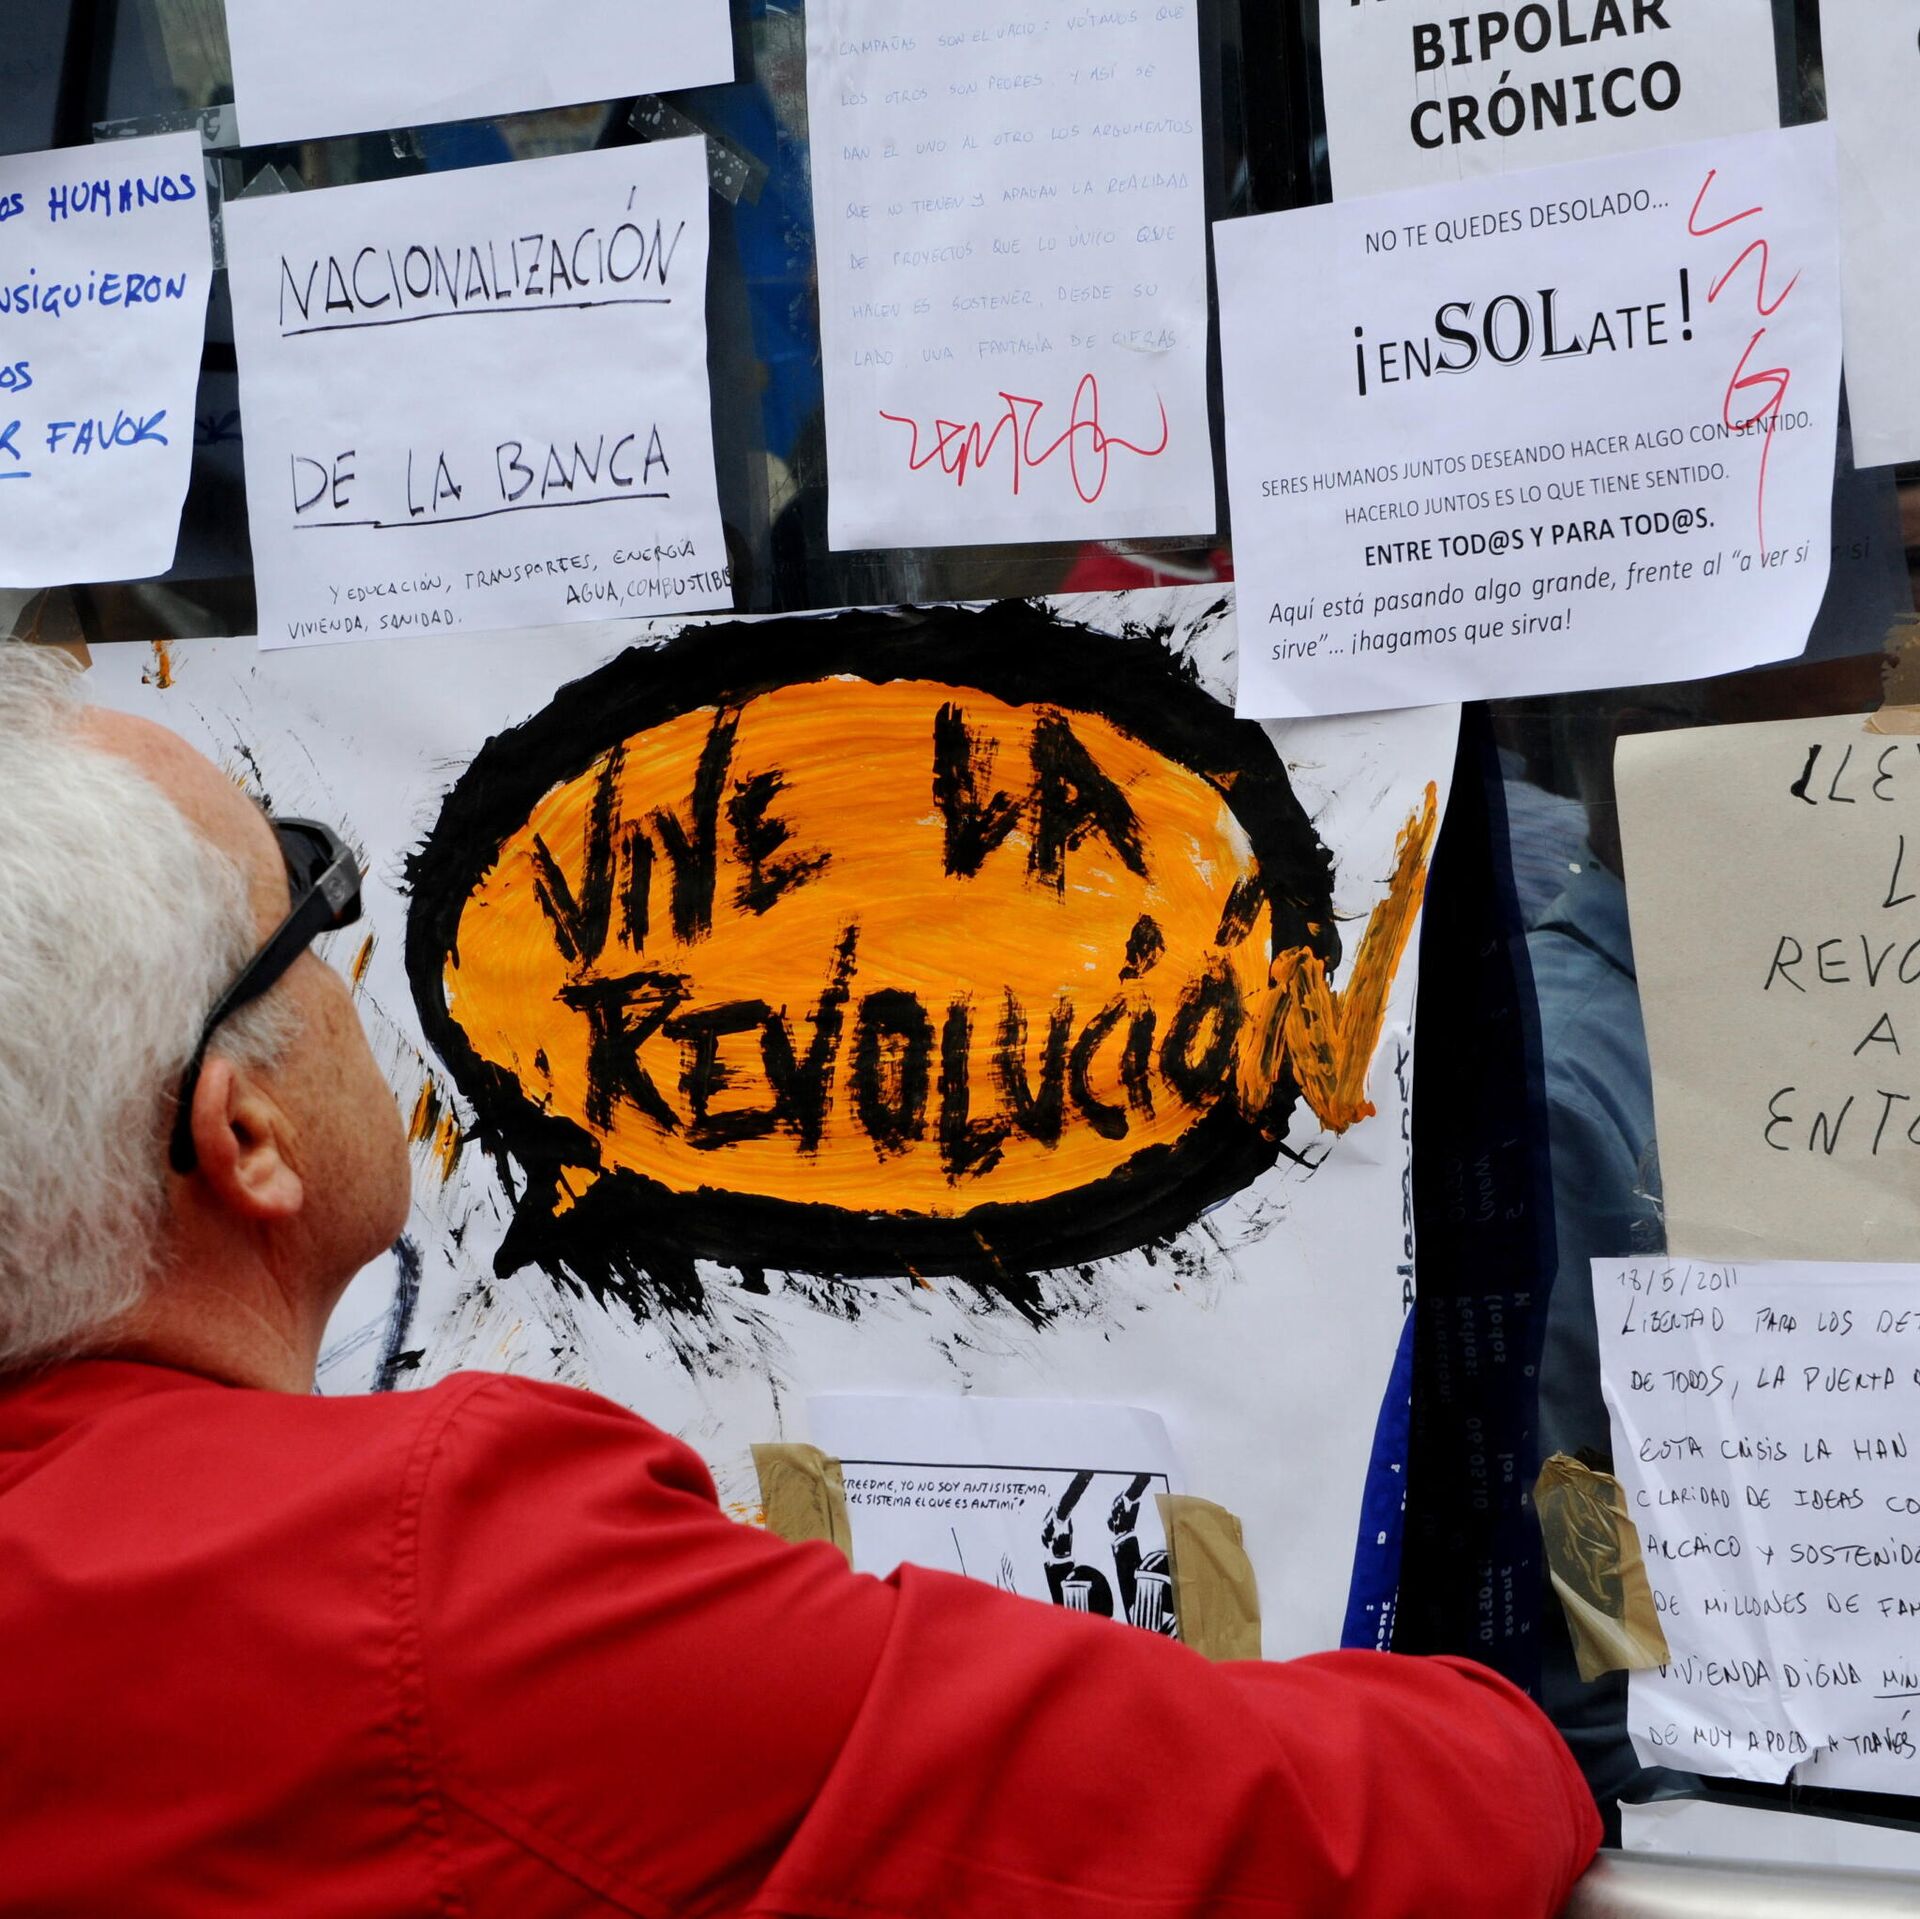 OS HUMANOS
NSIGUIERON
OS
R FAVOR
NACIONALIZACIÓN
DE LA BANCA
Y EDUCACIÓN, TRANSPORTES, ENERGÍA
AGUA, COMBUSTIBLE
VIVIENDA, SANIDAD.
CAMPAÑAS SON EL VACIO: VÓTANOS QUE
LOS OTROS SON PEORES. Y ASÍ SE
DAN EL UNO AL OTRO LOS ARGUMENTOS
QUE NO TIENEN Y APAGAN LA REALIDAD
DE PROYECTOS QUE LO ÚNICO QUE
HACEN ES SOSTENER, DESDE SU
LADO, UNA FANTASÍA DE CIFRAS.
BIPOLAR
CRÓNICO
NO TE QUEDES DESOLADO...
¡ENSOLATE!
SERES HUMANOS JUNTOS DESEANDO HACER ALGO CON SENTIDO.
HACERLO JUNTOS ES LO QUE TIENE SENTIDO.
ENTRE TOD@S Y PARA TOD@S.
Aquí está pasando algo grande, frente al "a ver si
sirve"... ¡hagamos que sirva!
VIVE LA
REVOLUCIÓN
plaza.net
CREEDME, YO NO SOY ANTISISTEMA,
ES EL SISTEMA EL QUE ES ANTIMÍ!
REVO
A
ENTO
18/5/2011
LIBERTAD PARA LOS DET
DE TODOS, LA PUERTA
ESTA CRISIS LA HAN
CLARIDAD DE IDEAS CO
ARCAICO Y SOSTENIDO
DE MILLONES DE FAM
VIVIENDA DIGNA MIN
DE MUY A POCO, A TRAVÉS